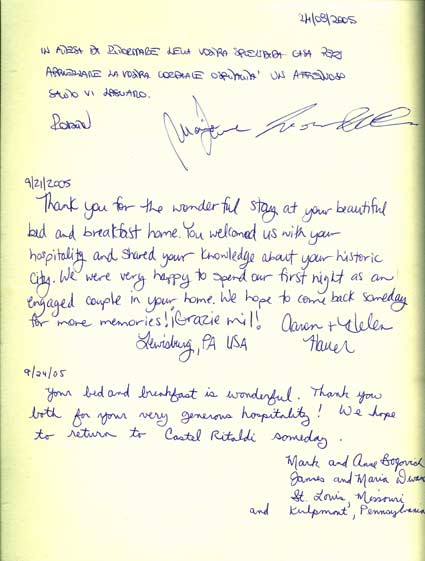 24/08/2005
IN ATTESA DI RITORNARE NELLA VOSTRA SPLENDIDA CASA PER
APPREZZARE LA VOSTRA CORDIALE OSPITALITA' UN AFFETTUOSO
SALUTO VI LASCIAMO.
9/21/2005
Thank you for the wonderful stay at your beautiful
bed and breakfast home. You welcomed us with your
hospitality and shared your knowledge about your historic
city. We were very happy to spend our first night as an
engaged couple in your home. We hope to come back someday
for more memories! ¡Grazie mil! Aaron + Helen
Lewisburg, PA USA
9/24/05
Your bed and breakfast is wonderful. Thank you
both for your very generous hospitality! We hope
to return to Castel Ritaldi someday.
Mark and Anne
James and Maria
St. Louis, Missouri
and Kulpmont, Pennsylvania